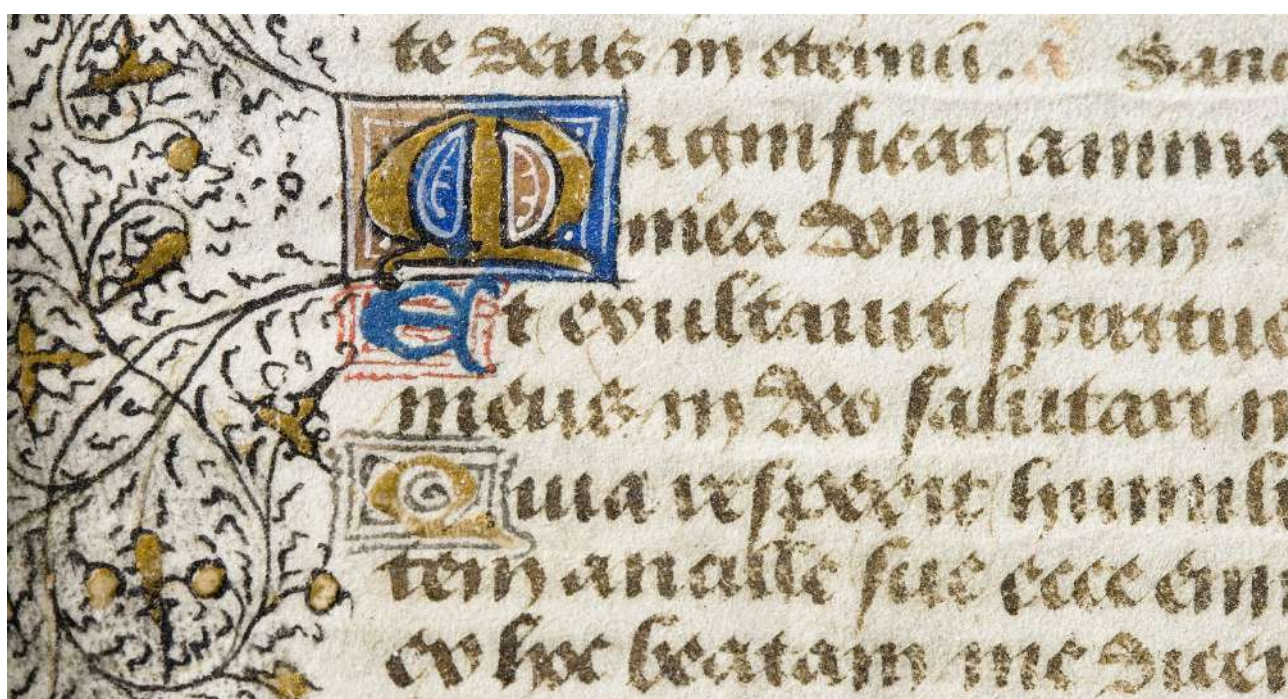 te deus in eternū. a Sanc
Magnificat anima
mea dominum.
Et exultauit spiritus
meus in deo salutari m
Quia respexit humili
tem ancille sue ecce enim
ex hoc beatam me dicen